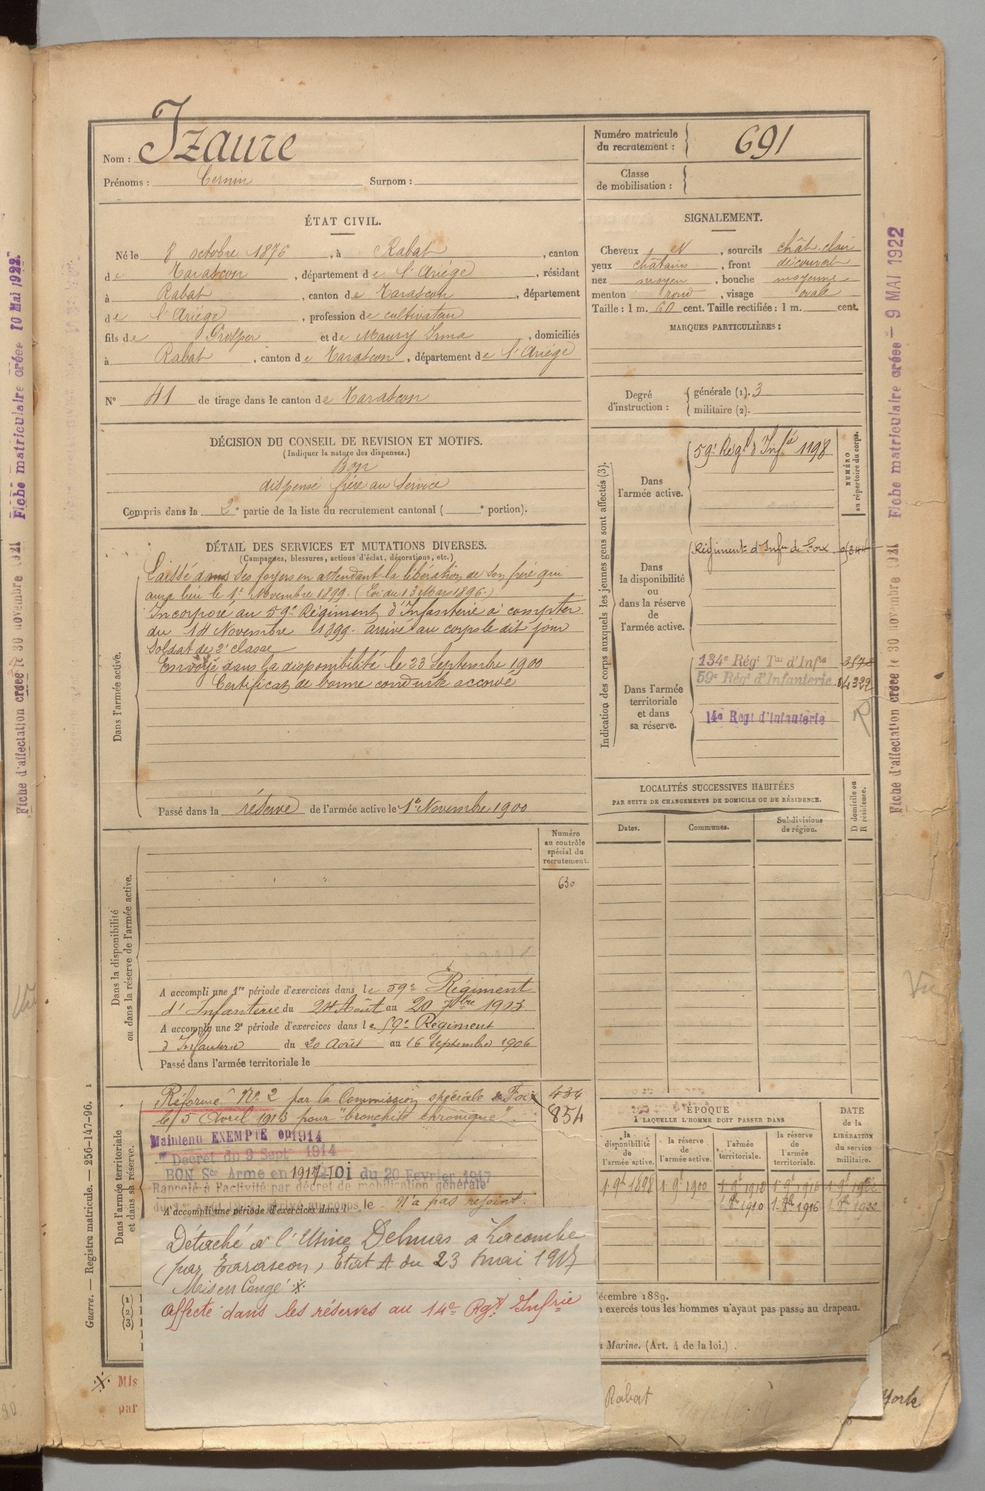 Nom : Izaure
Prénoms : Cernin Surnom :
Numéro matricule du recrutement : 691
Classe de mobilisation :
ÉTAT CIVIL.
Né le 8 octobre 1876, à Rabat, canton
de Tarascon, département de l'Ariége, résidant
à Rabat, canton de Tarascon, département
de l'Ariége, profession de cultivateur
fils de Prosper et de Maury Irma, domiciliés
à Rabat, canton de Tarascon, département de l'Ariége
N° 41 de tirage dans le canton de Tarascon
SIGNALEMENT.
Cheveux et, sourcils chât clair
yeux chatain, front découvert
nez moyen, bouche moyenne
menton rond, visage ovale
Taille : 1 m. 60 cent. Taille rectifiée : 1 m. cent.
MARQUES PARTICULIÈRES :
Degré d'instruction : générale (1). 3
militaire (2).
DÉCISION DU CONSEIL DE REVISION ET MOTIFS.
(Indiquer la nature des dispenses.)
Bon
dispensé frère au service
Compris dans la 2e partie de la liste du recrutement cantonal ( e portion).
DÉTAIL DES SERVICES ET MUTATIONS DIVERSES.
(Campagnes, blessures, actions d'éclat, décorations, etc.)
Dans l'armée active.
Laissé dans ses foyers en attendant la libération de son frère qui
aura lieu le 1er Novembre 1899. (Loi du 1896.)
Incorporé au 59e Régiment d'Infanterie à compter
du 14 Novembre 1899. arrivé au corps le dit jour
Soldat de 2e classe
Envoyé dans la disponibilité le 23 Septembre 1900
Certificat de bonne conduite accordé
Passé dans la réserve de l'armée active le 1er Novembre 1900
Indication des corps auxquels les jeunes gens sont affectés (3).
NUMÉRO au répertoire du corps.
Dans l'armée active.
59e Régt d'Infie 1198
Dans la disponibilité ou dans la réserve de l'armée active.
Régiment d'Infie de Foix
Dans l'armée territoriale et dans sa réserve.
134e Régt Tal d'Infie
59e Régt d'Infanterie
14e Regt d'Infanterie
R
LOCALITÉS SUCCESSIVES HABITÉES
PAR SUITE DE CHANGEMENTS DE DOMICILE OU DE RÉSIDENCE.
Dates. Communes. Subdivisions de région. D domicile ou R résidence.
Numéro au contrôle spécial du recrutement.
630
Dans la disponibilité ou dans la réserve de l'armée active.
A accompli une 1re période d'exercices dans le 59e Régiment
d'Infanterie du 24 Août au 20 7bre 1903
A accompli une 2e période d'exercices dans le 59e Régiment
d'Infanterie du 20 Août au 16 Septembre 1906
Passé dans l'armée territoriale le
Dans l'armée territoriale et dans sa réserve.
Réformé N° 2 par la Commission spéciale de Foix
le 15 Avril 1913 pour "bronchite chronique".
434
854
Maintenu EXEMPTÉ en 1914
Décret du 9 Sept 1914
BON Sce Armé en 1917 - 101 du 20 Fevrier 1917
Rappelé à l'activité par décret de mobilisation générale
N'a pas rejoint.
A accompli une période d'exercices dans
Détaché à l'Usine Delmas à Lacombe
(par Tarascon) Etat A du 23 mai 1917
Mis en Congé *
Affecté dans les réserves au 14e Rgt Infrie
ÉPOQUE
À LAQUELLE L'HOMME DOIT PASSER DANS
la disponibilité de l'armée active. la réserve de l'armée active. l'armée territoriale. la réserve de l'armée territoriale.
DATE de la LIBÉRATION du service militaire.
1 9bre 1898 1 9bre 1900 1 9bre 1910 1 9bre 1916
1 8bre 1910 1 8bre 1916 1 8bre 1922
décembre 1889.
exercés tous les hommes n'ayant pas passé au drapeau.
Marine. (Art. 4 de la loi.)
Rabat
York
* Mis
par
Guerre. — Registre matricule. — 256-147-96. 1
Fiche d'affectation créée le 30 novembre 1921 Fiche matriculaire créée 10 Mai 1922
Fiche d'affectation créée le 30 novembre 1921 Fiche matriculaire créée - 9 MAI 1922